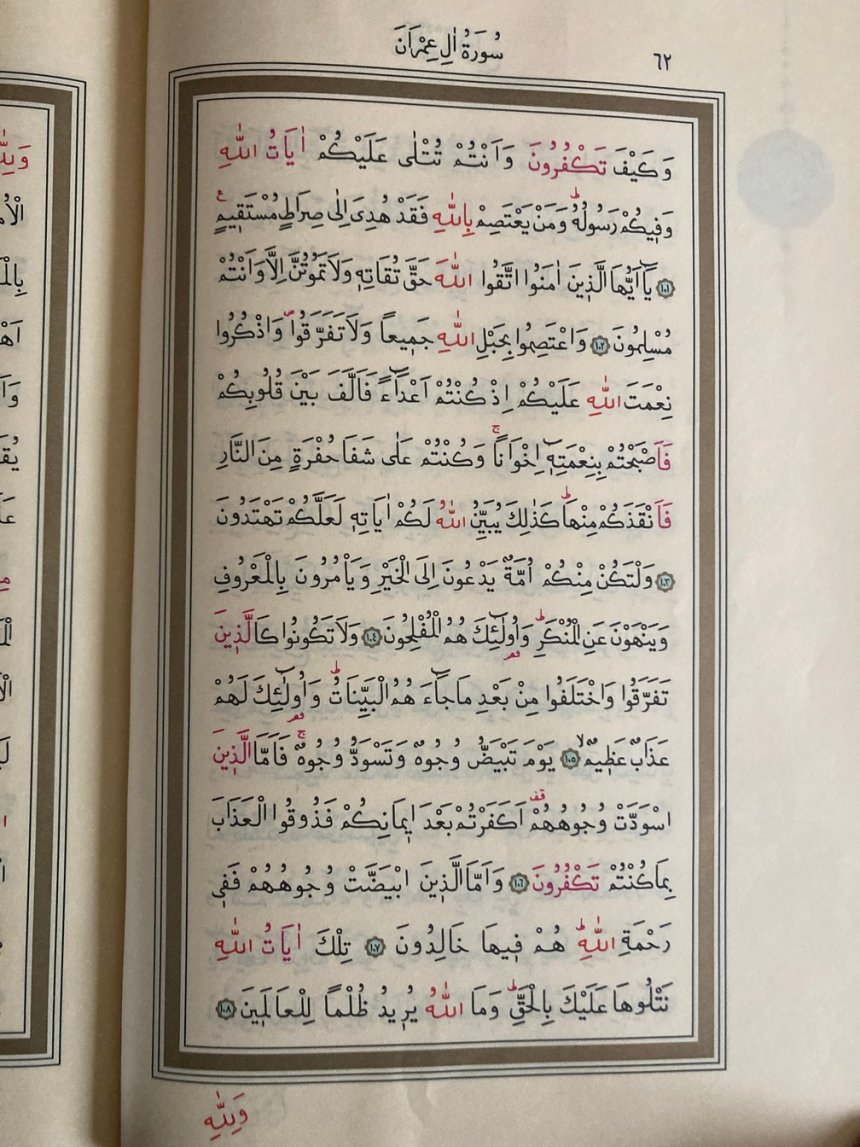 سُورَةُ اٰلِ عِمْرَانَ
٦٢
وَكَيْفَ تَكْفُرُونَ وَاَنْتُمْ تُتْلٰى عَلَيْكُمْ اٰيَاتُ اللّٰهِ
وَفِيكُمْ رَسُولُهُۜ وَمَنْ يَعْتَصِمْ بِاللّٰهِ فَقَدْ هُدِىَ اِلٰى صِرَاطٍ مُسْتَقِيمٍ۟
﴿١٠١﴾ يَٓا اَيُّهَا الَّذِينَ اٰمَنُوا اتَّقُوا اللّٰهَ حَقَّ تُقَاتِهِ وَلَا تَمُوتُنَّ اِلَّا وَاَنْتُمْ
مُسْلِمُونَ ﴿١٠٢﴾ وَاعْتَصِمُوا بِحَبْلِ اللّٰهِ جَمِيعاً وَلَا تَفَرَّقُواۖ وَاذْكُرُوا
نِعْمَتَ اللّٰهِ عَلَيْكُمْ اِذْ كُنْتُمْ اَعْدَٓاءً فَاَلَّفَ بَيْنَ قُلُوبِكُمْ
فَاَصْبَحْتُمْ بِنِعْمَتِهِٓ اِخْوَاناًۚ وَكُنْتُمْ عَلٰى شَفَا حُفْرَةٍ مِنَ النَّارِ
فَاَنْقَذَكُمْ مِنْهَاۜ كَذٰلِكَ يُبَيِّنُ اللّٰهُ لَكُمْ اٰيَاتِهِ لَعَلَّكُمْ تَهْتَدُونَ
﴿١٠٣﴾ وَلْتَكُنْ مِنْكُمْ اُمَّةٌ يَدْعُونَ اِلَى الْخَيْرِ وَيَأْمُرُونَ بِالْمَعْرُوفِ
وَيَنْهَوْنَ عَنِ الْمُنْكَرِۜ وَاُو۬لٰٓئِكَ هُمُ الْمُفْلِحُونَ ﴿١٠٤﴾ وَلَا تَكُونُوا كَالَّذِينَ
تَفَرَّقُوا وَاخْتَلَفُوا مِنْ بَعْدِ مَا جَٓاءَ هُمُ الْبَيِّنَاتُۜ وَاُو۬لٰٓئِكَ لَهُمْ
عَذَابٌ عَظِيمٌۙ ﴿١٠٥﴾ يَوْمَ تَبْيَضُّ وُجُوهٌ وَتَسْوَدُّ وُجُوهٌۚ فَاَمَّا الَّذِينَ
اسْوَدَّتْ وُجُوهُهُمْ۠ اَكَفَرْتُمْ بَعْدَ اِيمَانِكُمْ فَذُوقُوا الْعَذَابَ
بِمَا كُنْتُمْ تَكْفُرُونَ ﴿١٠٦﴾ وَاَمَّا الَّذِينَ ابْيَضَّتْ وُجُوهُهُمْ فَفِي
رَحْمَةِ اللّٰهِۜ هُمْ فِيهَا خَالِدُونَ ﴿١٠٧﴾ تِلْكَ اٰيَاتُ اللّٰهِ
نَتْلُوهَا عَلَيْكَ بِالْحَقِّۜ وَمَا اللّٰهُ يُرِيدُ ظُلْمًا لِلْعَالَمِينَ ﴿١٠٨﴾
وَلِلّٰهِ